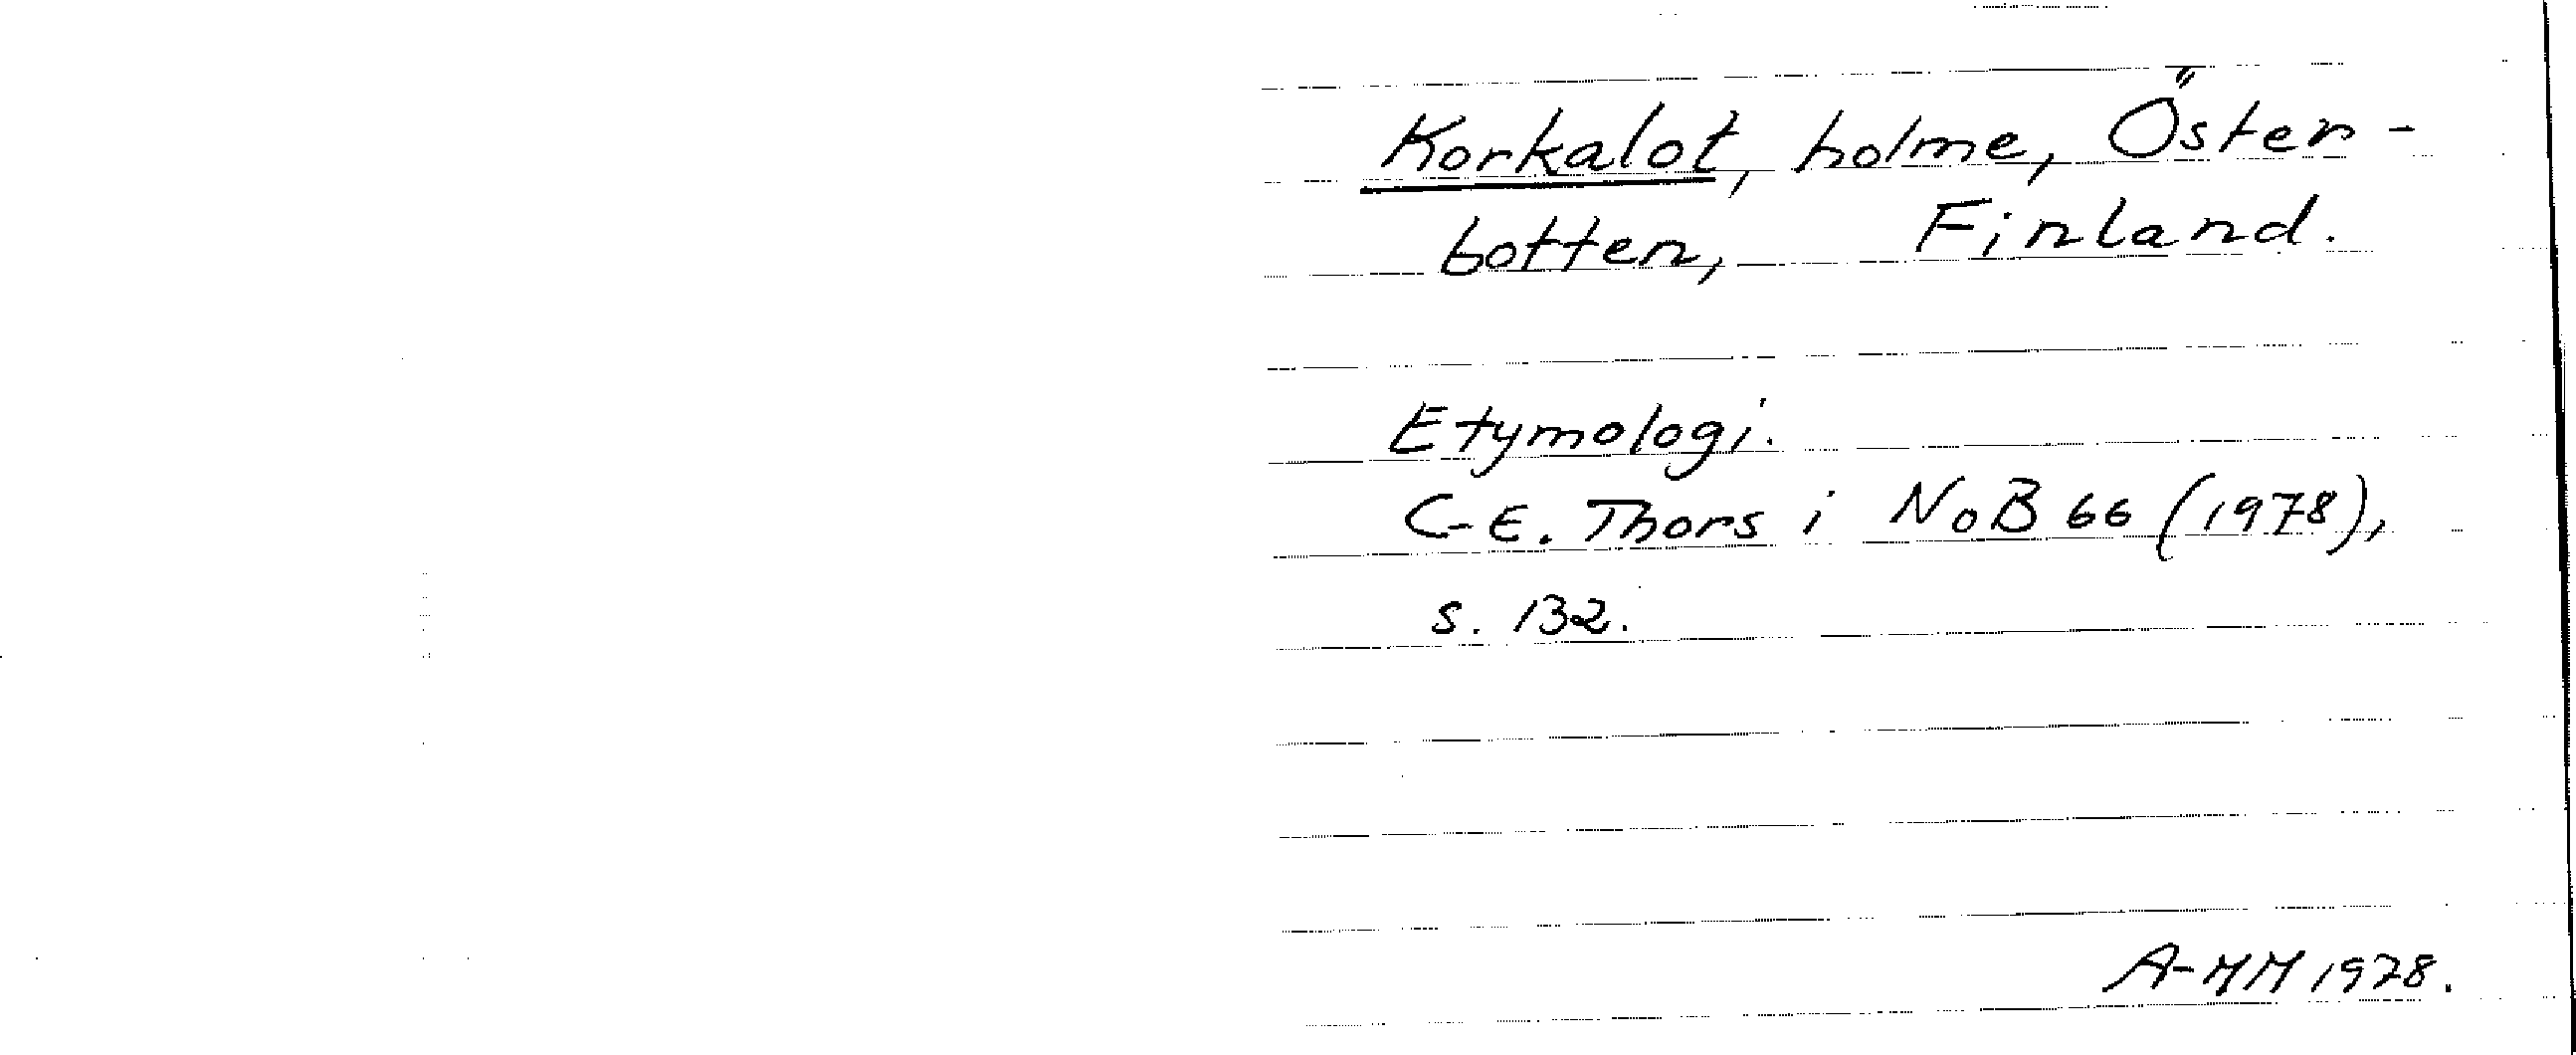 Korkalot, holme, Öster-
botten, Finland.
Etymologi.
C-E. Thors i NoB 66 (1978),
s. 132.
A-MM 1978.